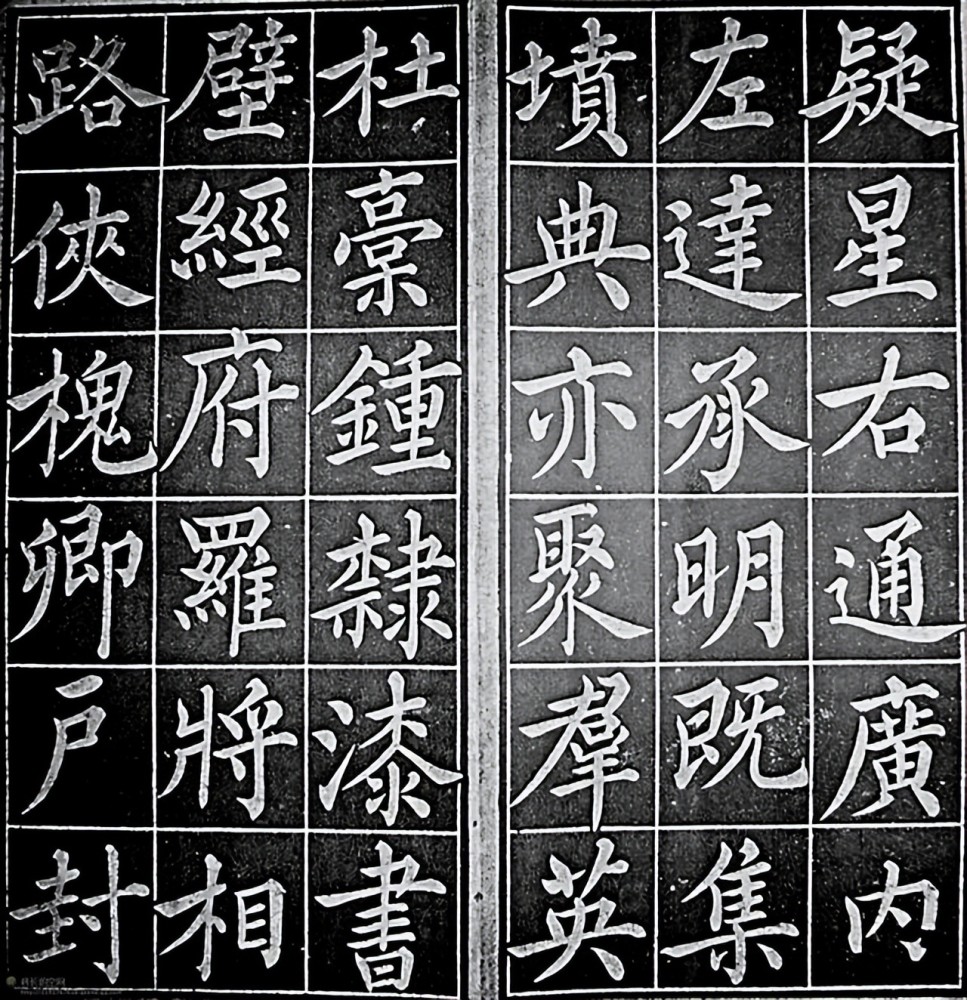 疑星右通廣内
左達承明既集
墳典亦聚羣英
杜稾鍾隸漆書
壁經府羅將相
路俠槐卿戶封